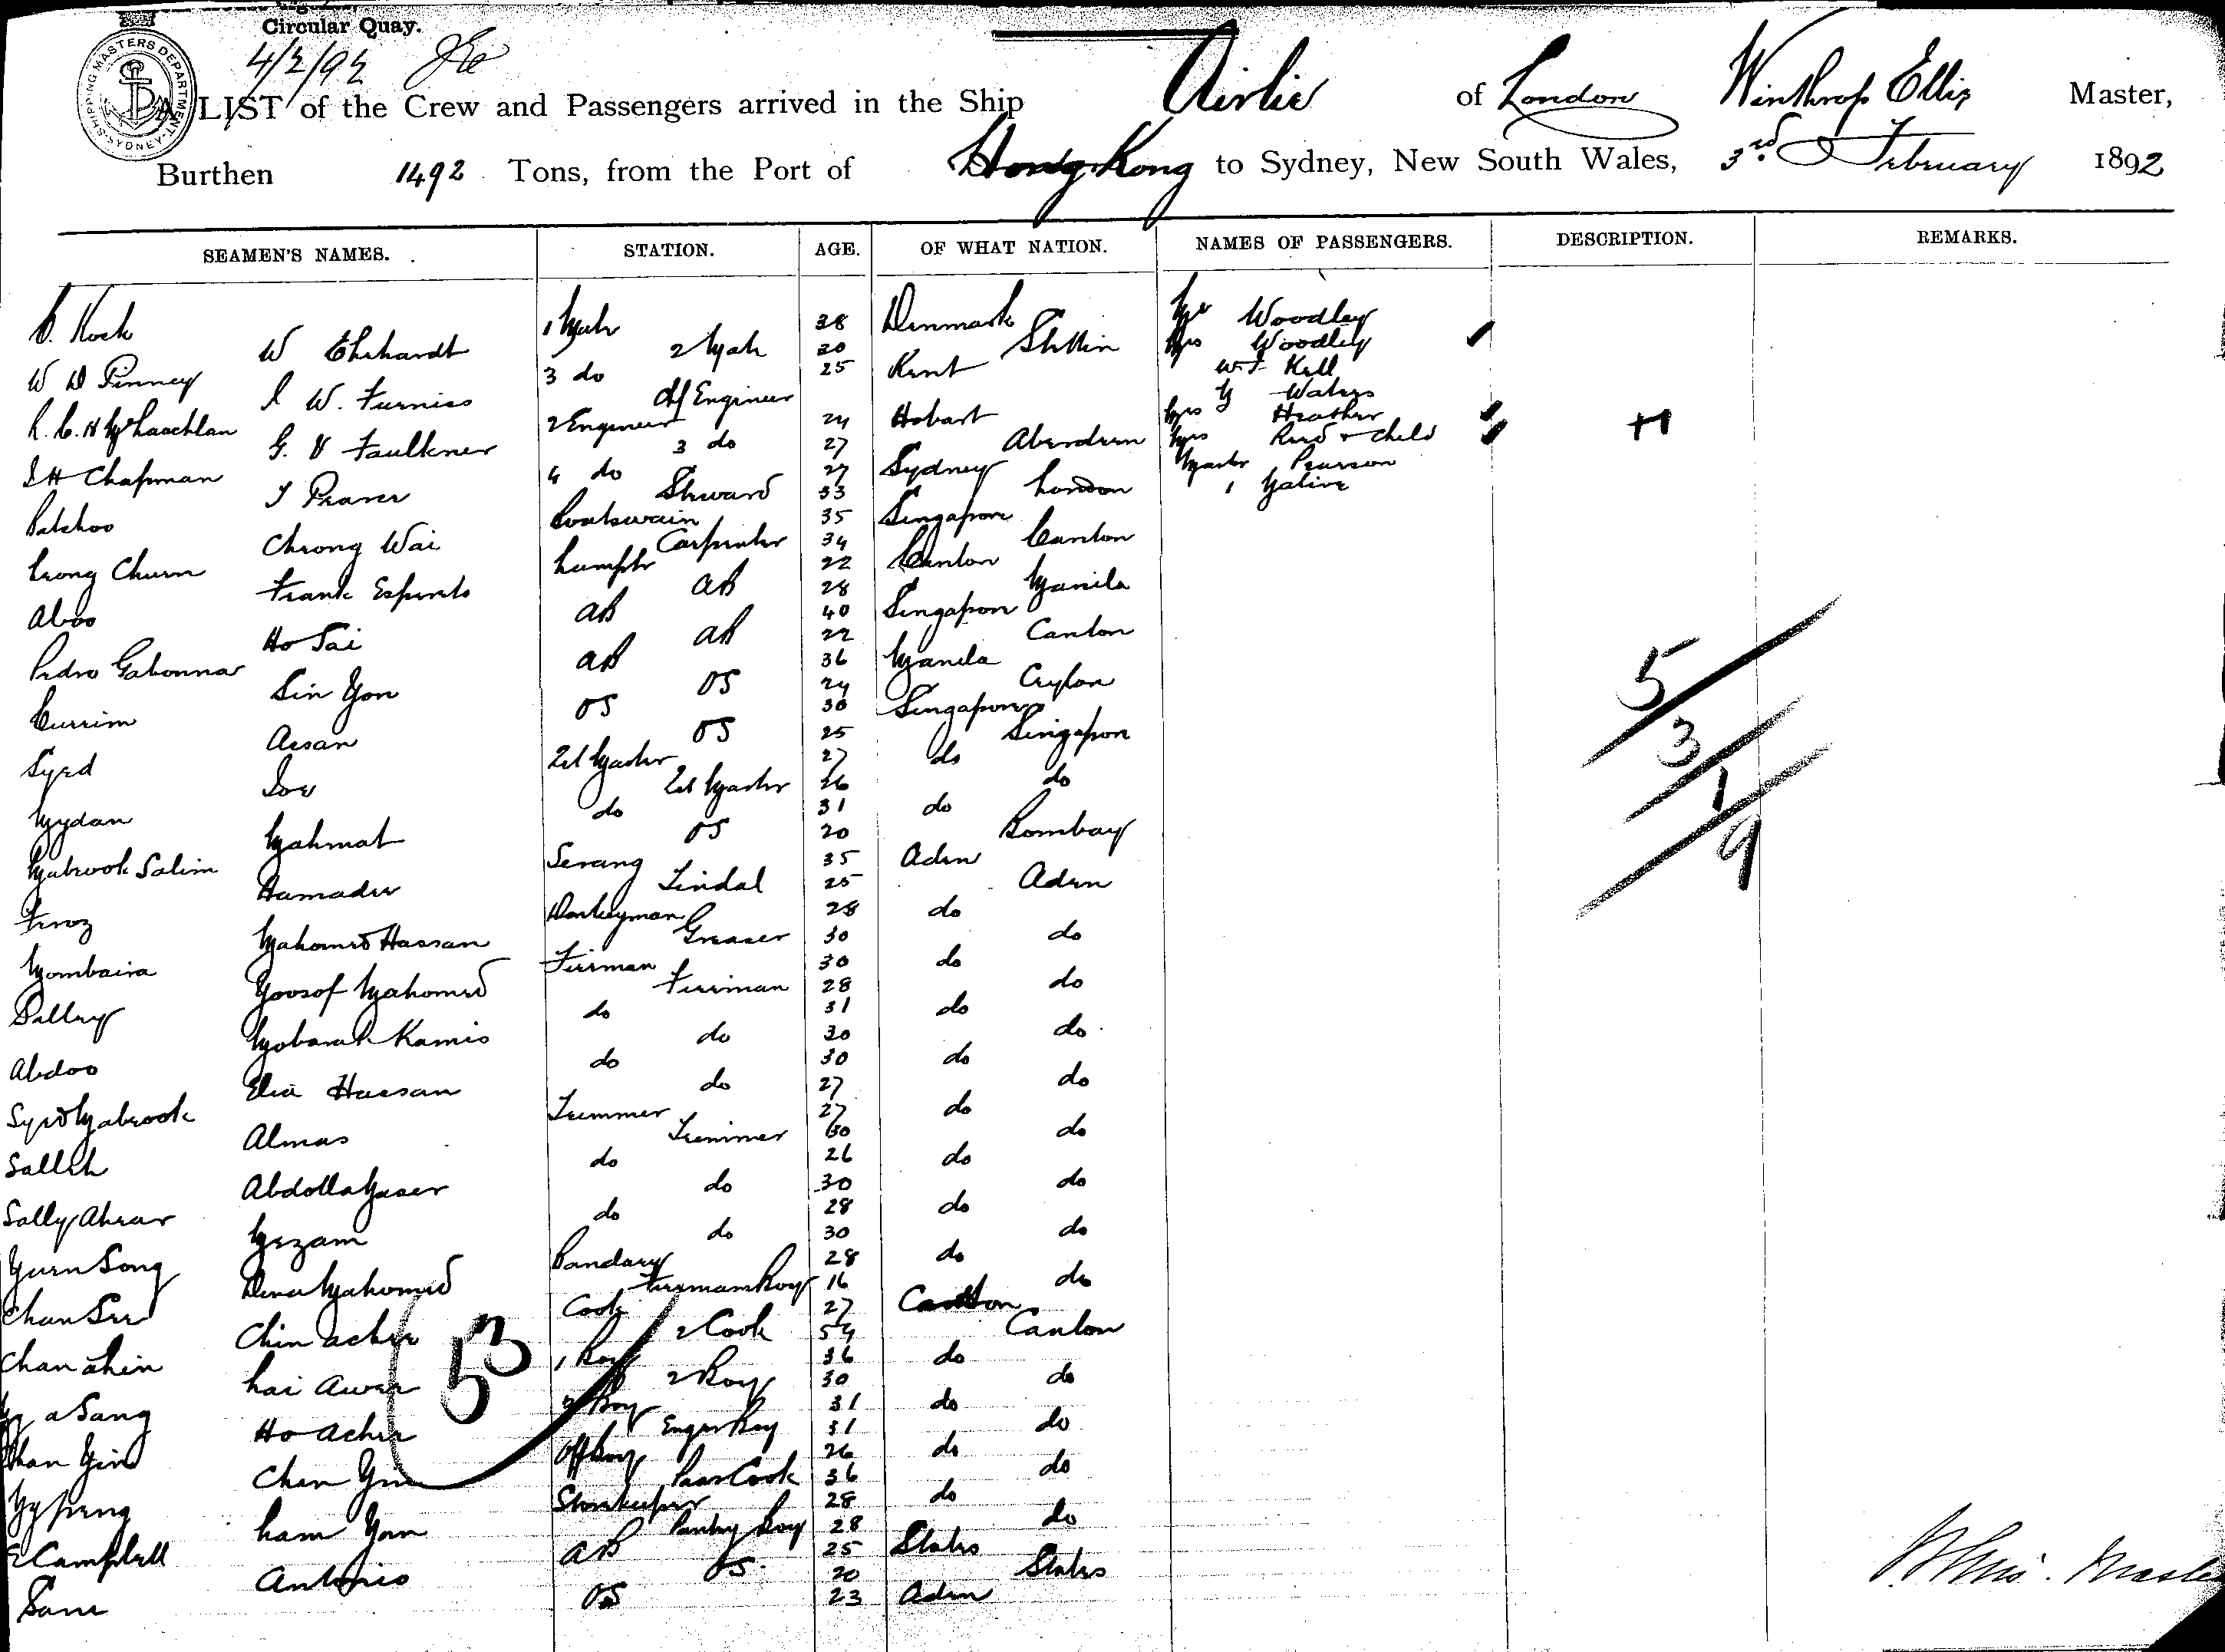 Circular Quay.
4/2/92
SHIPPING MASTERS DEPARTMENT SYDNEY
A LIST of the Crew and Passengers arrived in the Ship Airlie of London Winthrop Ellis Master,
Burthen 1492 Tons, from the Port of Hong Kong to Sydney, New South Wales, 3rd February 1892
SEAMEN'S NAMES. STATION. AGE. OF WHAT NATION. NAMES OF PASSENGERS. DESCRIPTION. REMARKS.
C. Kock 1 Mate 38 Denmark Mr Woodley
W Ehrhardt 2 Mate 30 Stettin Mrs Woodley
W D Pinney 3 do 25 Kent W.J. Kell
W. Furniss Chf Engineer Waters
McLaachlan 2 Engineer 24 Hobart Mrs Heather
G. V Faulkner 3 do 27 Aberdeen Mrs Reed + child
Chapman 4 do 27 Sydney Master Pearson
J Pearer Steward 33 London 1 Native
Balchoo Boatswain 35 Singapore
Cheong Wai Carpenter 34 Canton
Leong Churn Lamptr 22 Canton
Frank Esperito AB 28 Manila
Aboo AB 40 Singapore
Ho Sai AB 22 Canton
Pedro Gabonnar AB 36 Manila
Sin Yon OS 24 Ceylon
Currim OS 30 Singapore
Assan OS 25 Singapore
Syed Qtr Master 27 do
Qtr Master 26 do
Mydan do 31 do
Mahmat OS 20 Bombay
Mabrook Salim Serang 35 Aden
Hamadee Tindal 25 Aden
Feroz Donkeyman 28 do
Mahomed Hassan Greaser 30 do
Mombaira Fireman 30 do
Yoosof Mahomed Fireman 28 do
Salley do 31 do
Mobarak Kamis do 30 do
Abdoo do 30 do
Elia Hassan do 27 do
Syed Mabrook Trimmer 27 do
Almas Trimmer 30 do
Salleh do 26 do
Abdolla Naser do 30 do
Sally Ahrar do 28 do
Mezam do 30 do
Yuen Song Bandary 28 do
Dena Mahomed Firemans Boy 16 do
Chan See Cook 27 Canton
Chin achee 2 Cook 54 Canton
Chan ahin 1 Boy 36 do
Lai Awer 2 Boy 30 do
a Sang 3 Boy 31 do
Ho Achee Engrs Boy 31 do
Chan Yind Off Boy 26 do
Chen Yne Pass Cook 36 do
Ny peng Storekeeper 28 do
Lam Yon Pantry Boy 28 do
E Campbell AB 25 States
Antonio OS 20 States
Sam OS 23 Aden
53
5/
3/
1/
9
Ellis. Master